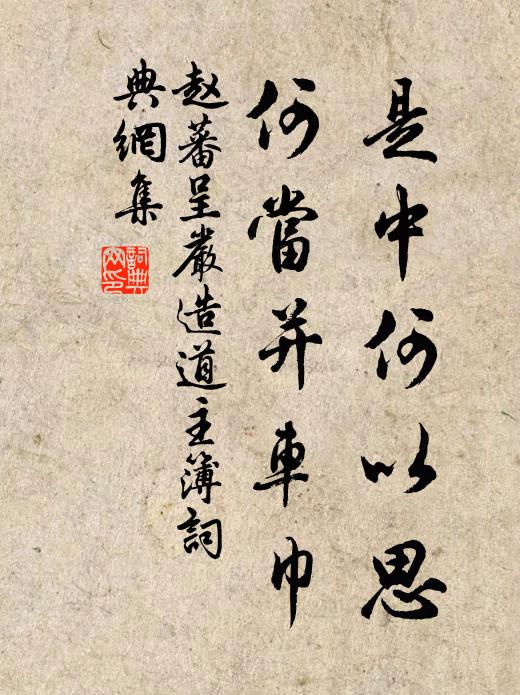 是中何以思
何當并車巾
赵蕃呈嚴造道主簿詞
典網集
詞典網印